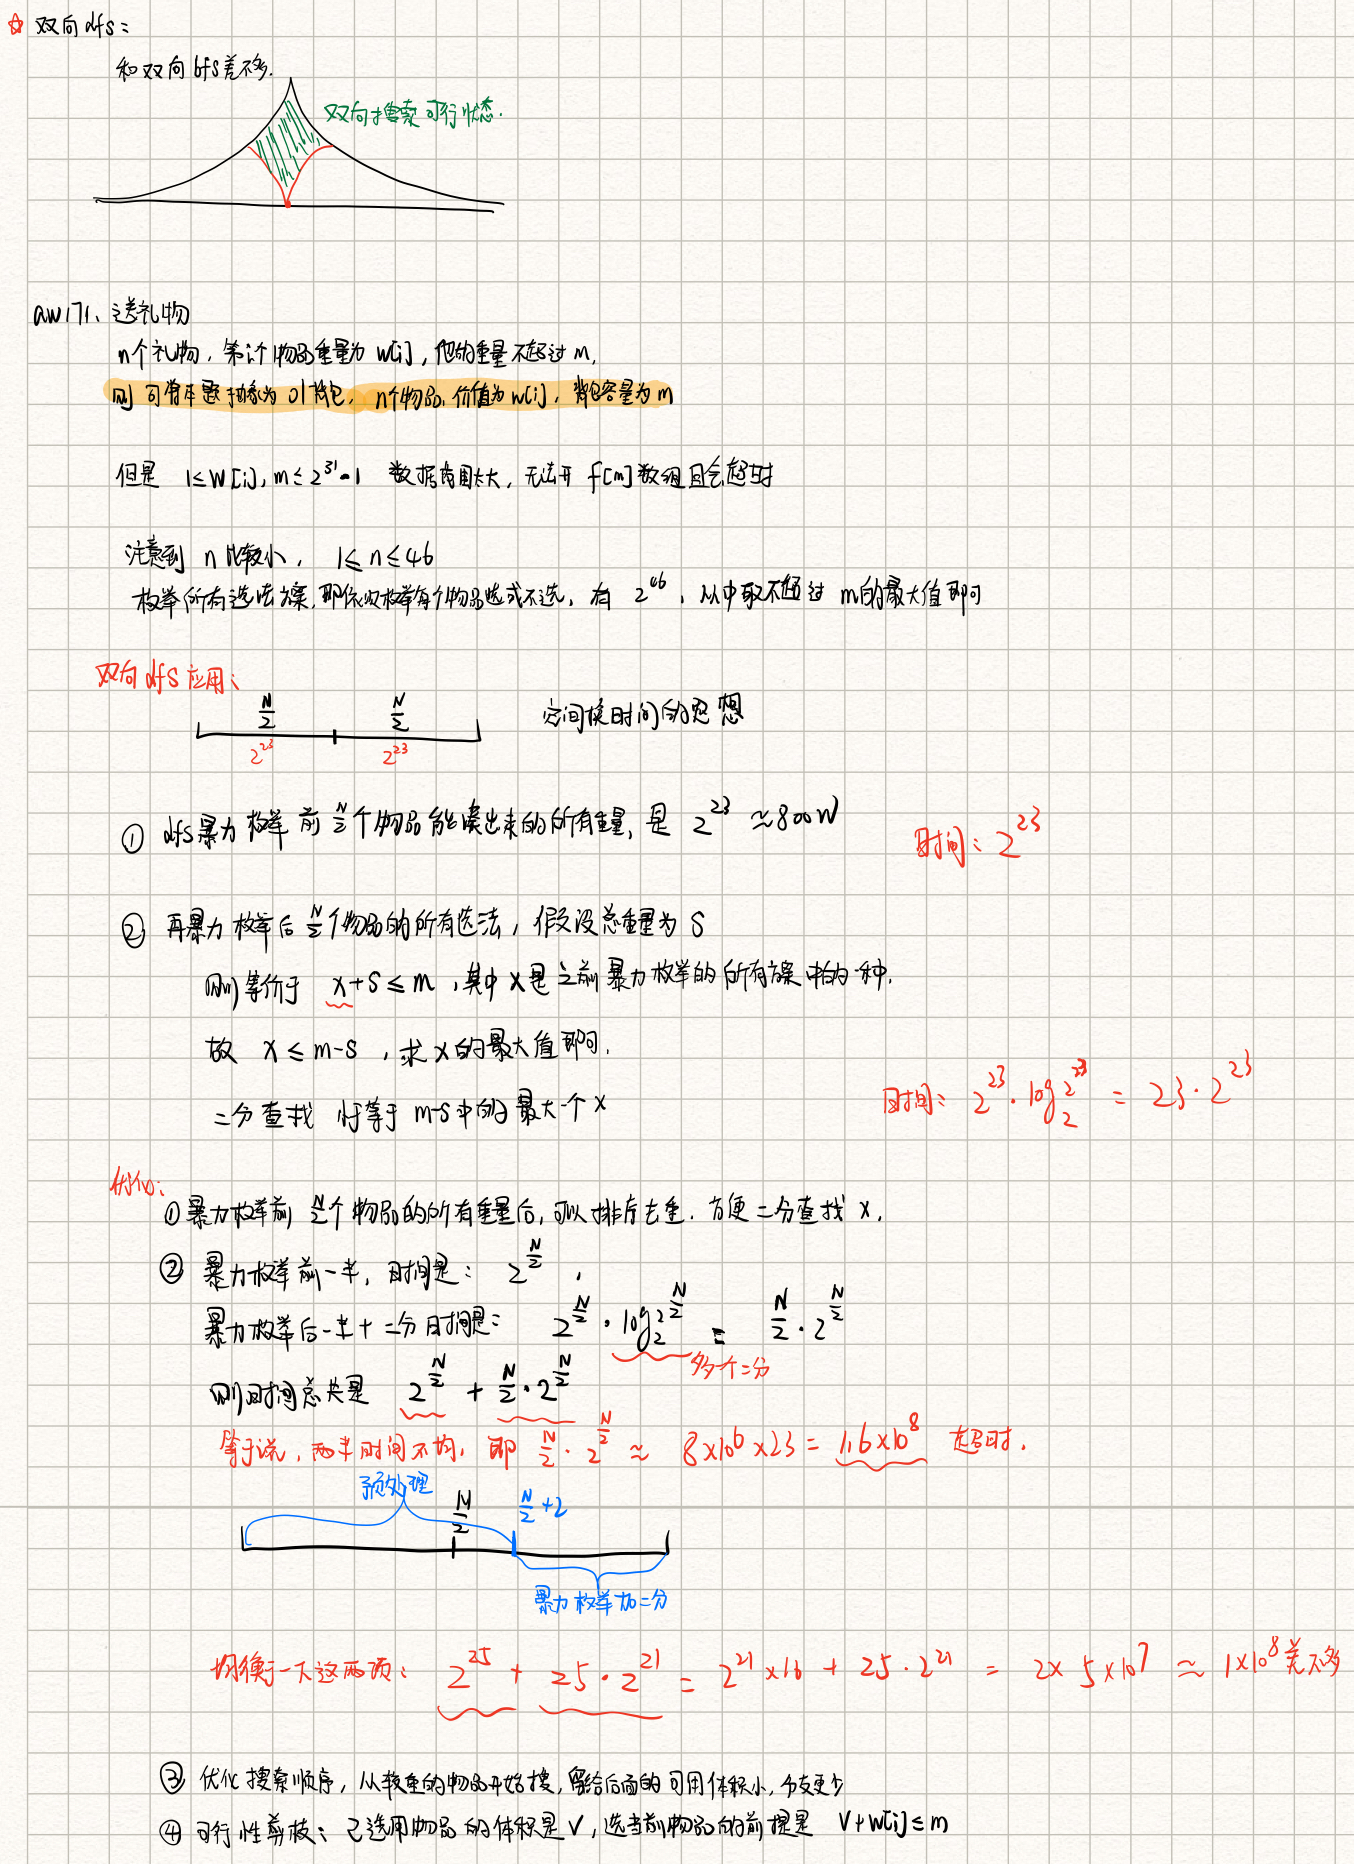 ☆ 双向dfs：
和双向bfs差不多.
双向搜索可行状态.
aw171、送礼物
n个礼物，第i个物品重量为 w[i]，他的重量不超过 m.
则 可将本题抽象为 01背包，n个物品，价值为 w[i]，背包容量为 m
但是 1≤W[i], m≤2^31-1 数据范围太大，无法开 f[m] 数组且会超时
注意到 n 比较小， 1≤n≤46
枚举所有选法方案，即依次枚举每个物品选或不选，有 2^46，从中取不超过 m的最大值即可
双向dfs应用：
N/2 N/2 空间换时间的思想
2^23 2^23
① dfs暴力枚举 前 N/2 个物品能凑出来的所有重量，是 2^23 ≈800W
时间：2^23
② 再暴力枚举后 N/2 个物品的所有选法，假设总重量为 S
则等价于 x+S≤m，其中 x 是之前暴力枚举的所有方案中的一种.
故 x≤m-S，求 x 的最大值即可.
二分查找 小于等于 m-S 中的最大一个 x
时间：2^23 · log_2 2^23 = 23·2^23
优化：
①暴力枚举前 N/2 个物品的所有重量后，可以排序去重. 方便二分查找 x.
② 暴力枚举前一半，时间是： 2^(N/2) ，
暴力枚举后一半+二分时间是： 2^(N/2) · log_2 2^(N/2) = N/2 · 2^(N/2)
多个二分
则时间总共是 2^(N/2) + N/2 · 2^(N/2)
等于说，两半时间不均，即 N/2 · 2^(N/2) ≈ 8×10^6×23 = 1.6×10^8 超时.
预处理 N/2 N/2+2
暴力枚举加二分
均衡一下这两项： 2^25 + 25·2^21 = 2^21×16 + 25·2^21 = 2×5×10^7 ≈ 1×10^8 差不多
③ 优化搜索顺序，从较重的物品开始搜，留给后面的可用体积小，分支更少
④ 可行性剪枝：已选用物品的体积是V，选当前物品的前提是 V+w[i]≤m